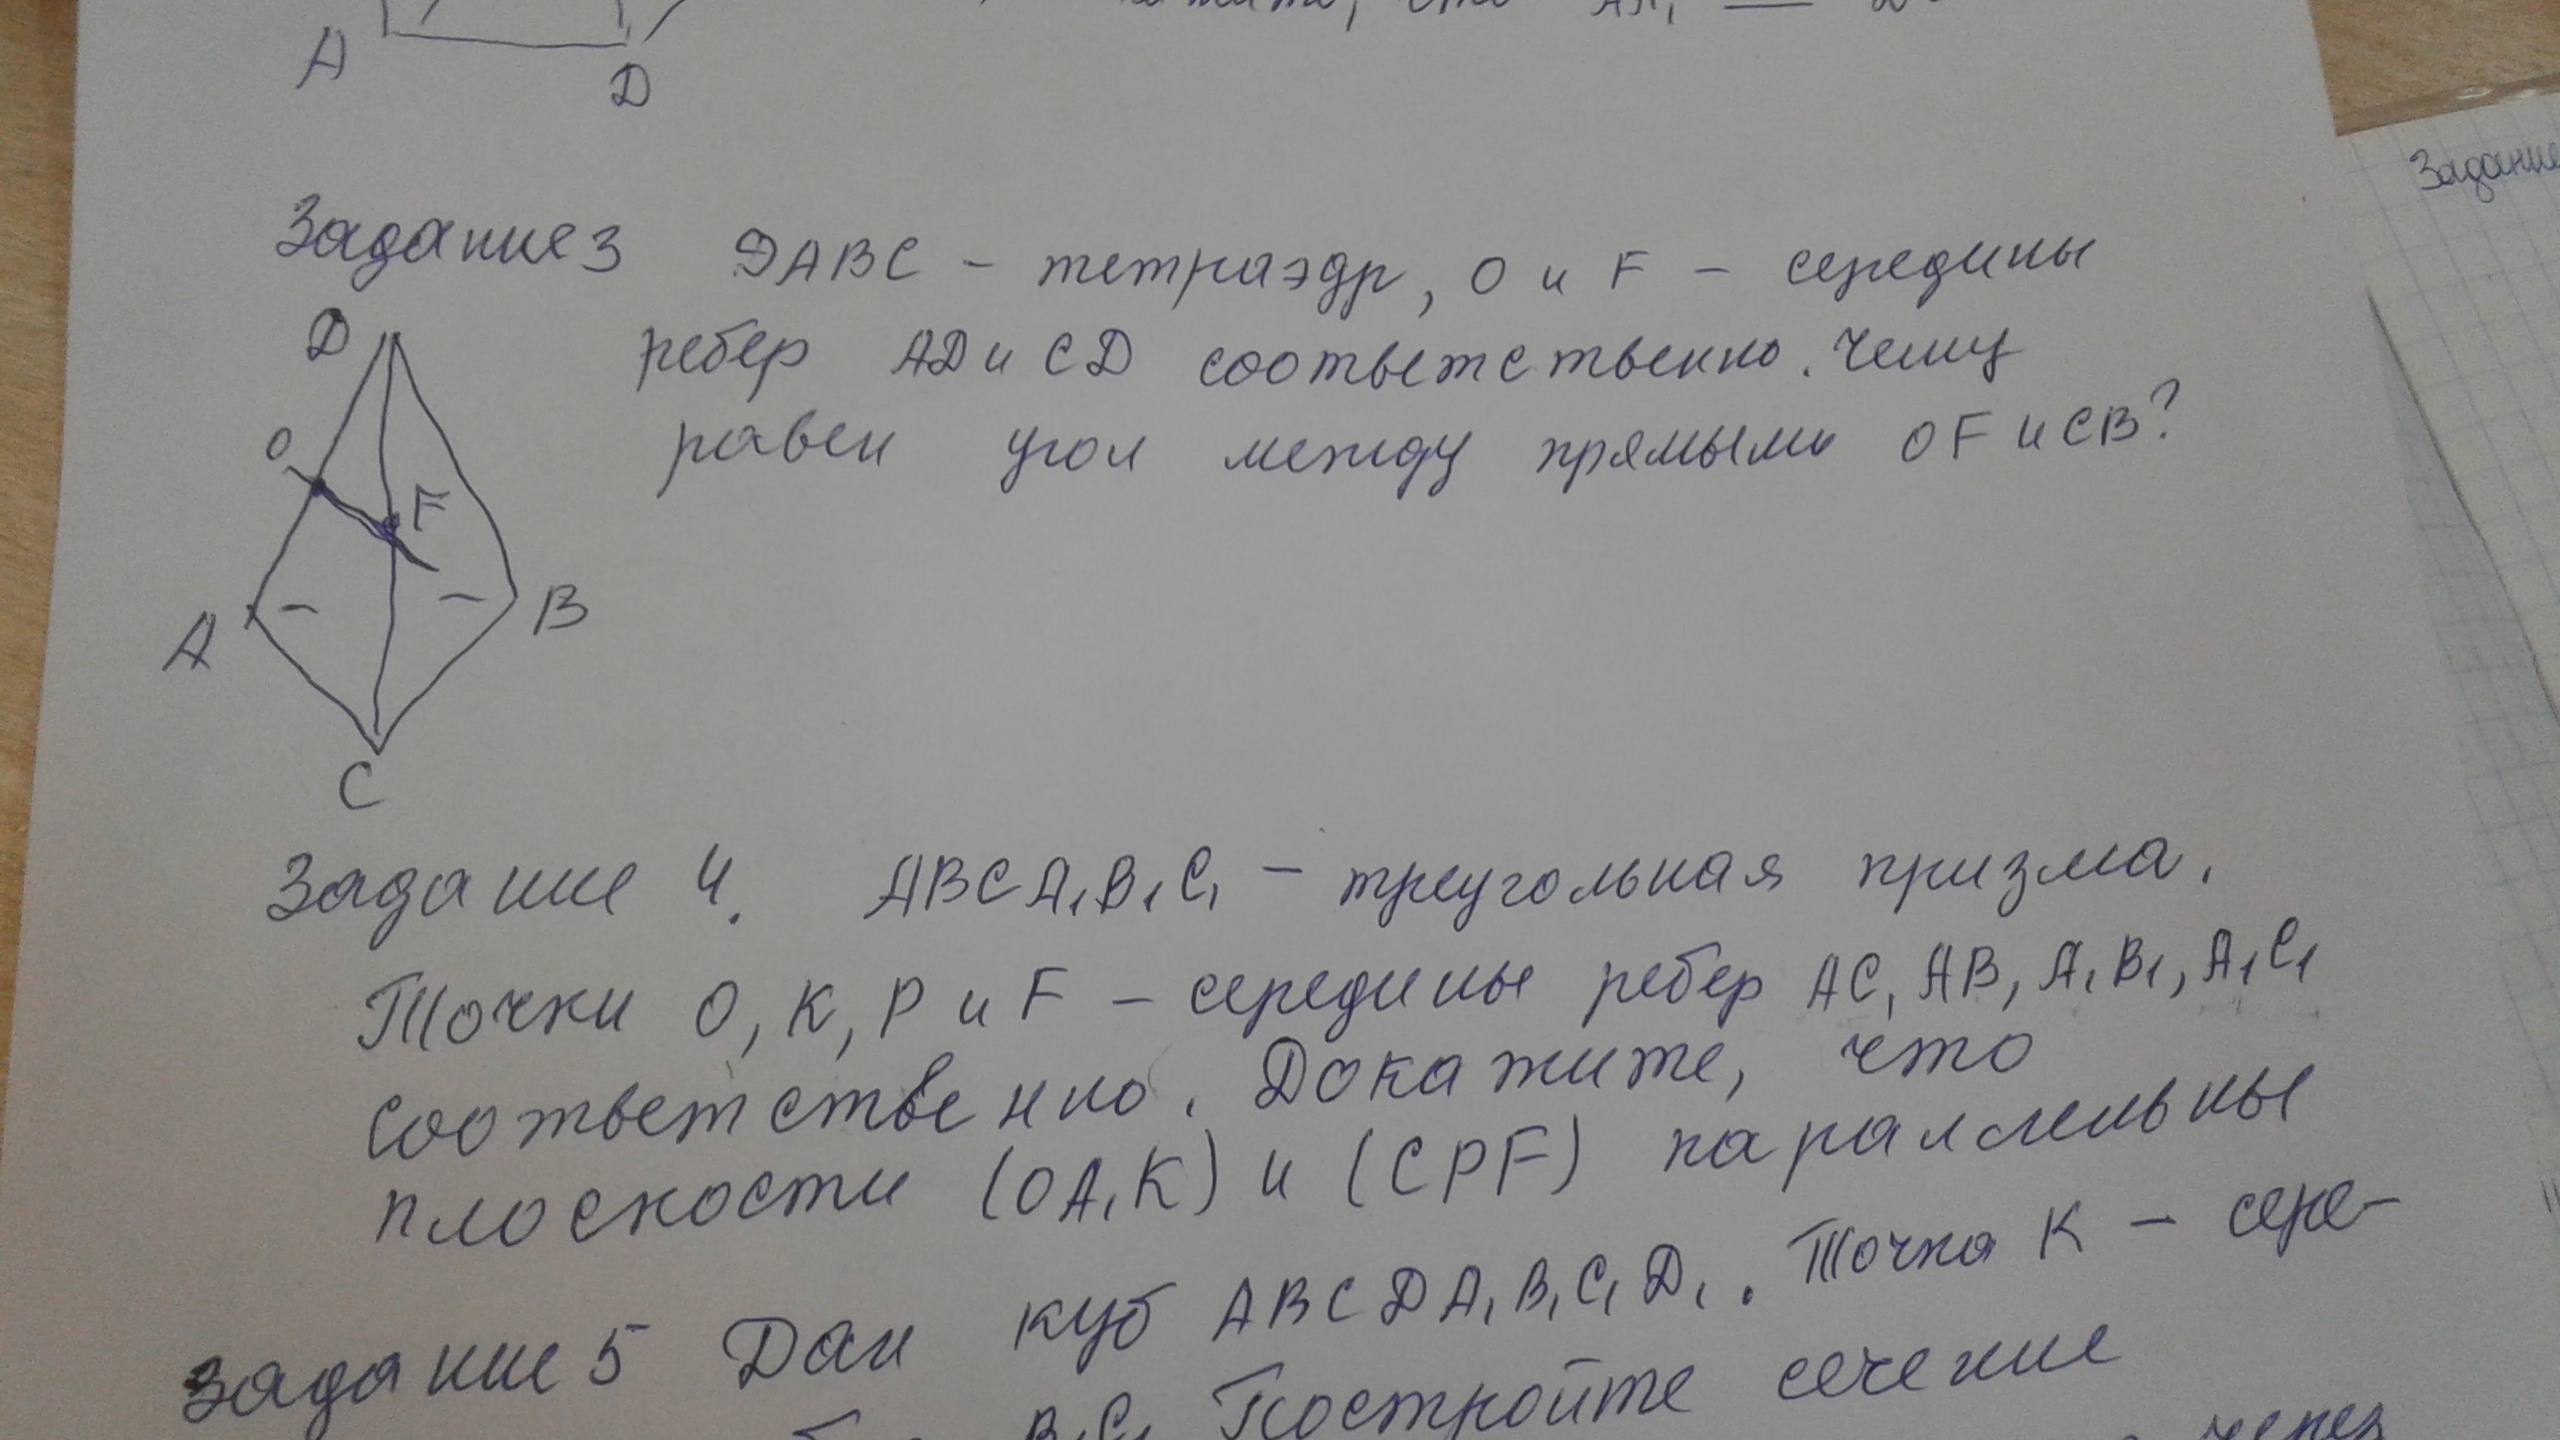 что AA₁
A
D
Задание 3 DABC – тетраэдр, O и F – середины
ребер AD и CD соответственно. Чему
равен угол между прямыми OF и CB?
D
O
F
A
B
C
Задание 4. ABCA₁B₁C₁ – треугольная призма.
Точки O, K, P и F – середины ребер AC, AB, A₁B₁, A₁C₁
соответственно. Докажите, что
плоскости (OA₁K) и (CPF) параллельны
Задание 5 Дан куб ABCDA₁B₁C₁D₁. Точка K – сере-
B₁C₁ Постройте сечение
через
Задание